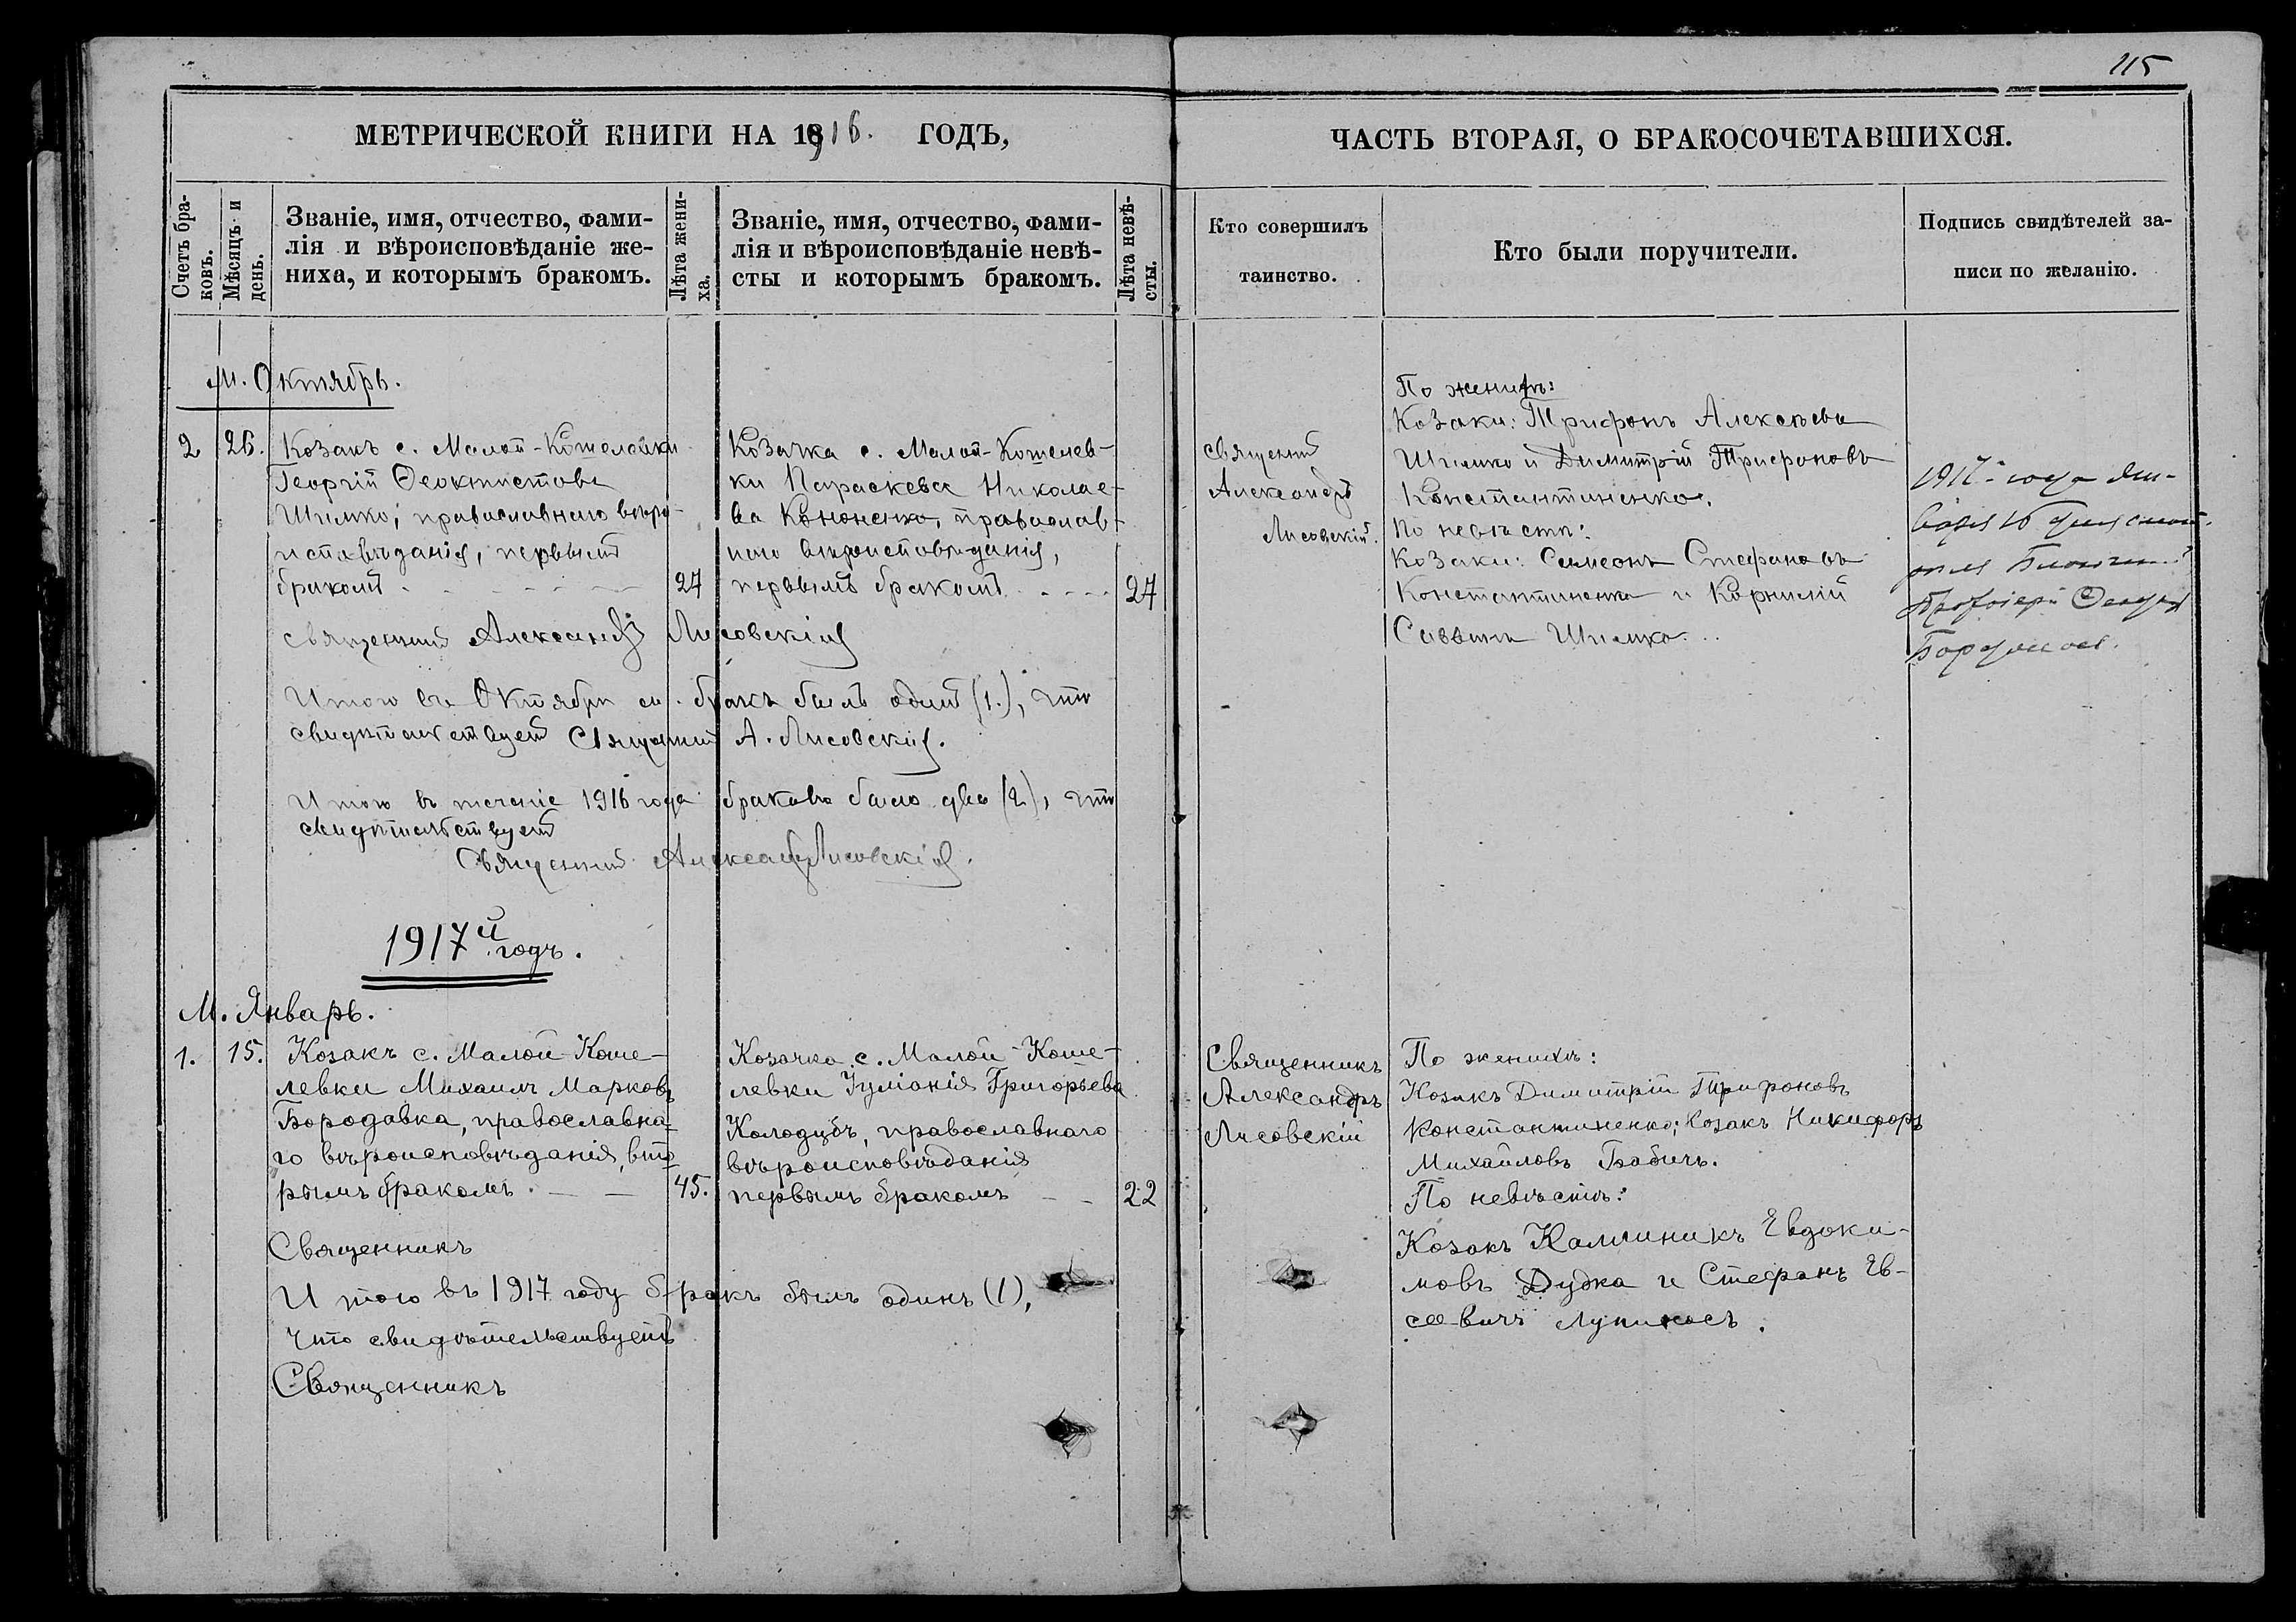 115
МЕТРИЧЕСКОЙ КНИГИ НА 1916. ГОДЪ,
ЧАСТЬ ВТОРАЯ, О БРАКОСОЧЕТАВШИХСЯ.
Счетъ бра-
ковъ.
Мѣсяцъ и
день.
Званіе, имя, отчество, фами-
лія и вѣроисповѣданіе же-
ниха, и которымъ бракомъ.
Лѣта жени-
ха.
Званіе, имя, отчество, фами-
лія и вѣроисповѣданіе невѣ-
сты и которымъ бракомъ.
Лѣта невѣ-
сты.
Кто совершилъ
таинство.
Кто были поручители.
Подпись свидѣтелей за-
писи по желанію.
М. Октябрь.
2 26. Козакъ с. Малой-Кошелевки
Георгій Ѳеоктистовъ
Шимко, православнаго вѣро-
исповѣданія, первымъ
бракомъ 27
Козачка с. Малой-Кошелев-
ки Параскева Николае-
ва Кононенко, православ-
наго вѣроисповѣданія,
первымъ бракомъ 27
Священникъ
Александръ
Лисовскій.
По женихѣ:
Козаки: Трифонъ Алексѣевъ
Шимко и Димитрій Трифоновъ
Константиненко.
По невѣстѣ:
Козаки: Симеонъ Стефановъ
Константиненко и Корнилій
Саввинъ Шимко.
1917 года Ян-
варя 16 дня
Протоіерей
Священникъ Александръ Лисовскій
Итого въ Октябрѣ м. бракъ былъ одинъ (1.), что
свидѣтельствуетъ Священникъ А. Лисовскій.
Итого въ теченіе 1916 года браковъ было два (2), что
свидѣтельствуетъ
Священникъ Александръ Лисовскій.
1917й годъ.
М. Январь.
1. 15. Козакъ с. Малой Коше-
левки Михаилъ Марковъ
Бородавка, православна-
го вѣроисповѣданія, вто-
рымъ бракомъ. 45.
Козачка с. Малой Коше-
левки Іуліанія Григорьева
Колодубъ, православнаго
вѣроисповѣданія
первымъ бракомъ 22
Священникъ
Александръ
Лисовскій
По женихѣ:
Козакъ Димитрій Трифоновъ
Константиненко; Козакъ Никифоръ
Михайловъ Бабичъ.
По невѣстѣ:
Козакъ Каллиникъ Евдоки-
мовъ Дудка и Стефанъ Ев-
сѣевичъ
Священникъ
Итого въ 1917 году бракъ былъ одинъ (1),
Что свидѣтельствуетъ
Священникъ